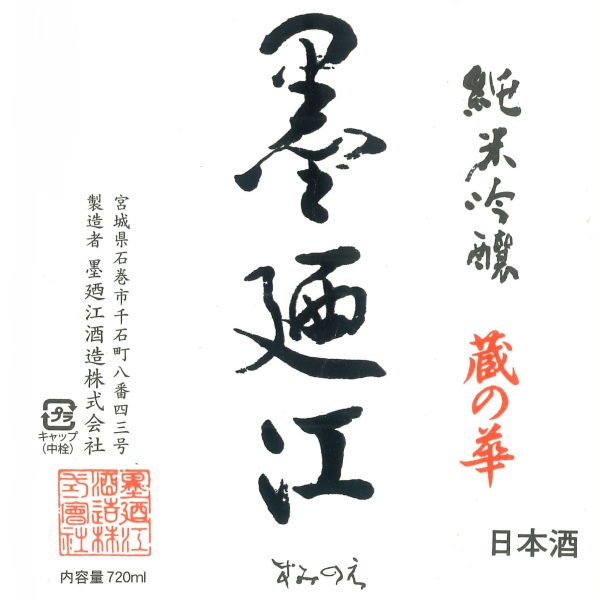 純米吟醸
蔵の華
日本酒
墨廼江
すみのえ
宮城県石巻市千石町八番四三号
製造者 墨廼江酒造株式会社
プラ
キャップ
(中栓)
墨廼江
酒造株
式會社
内容量 720ml